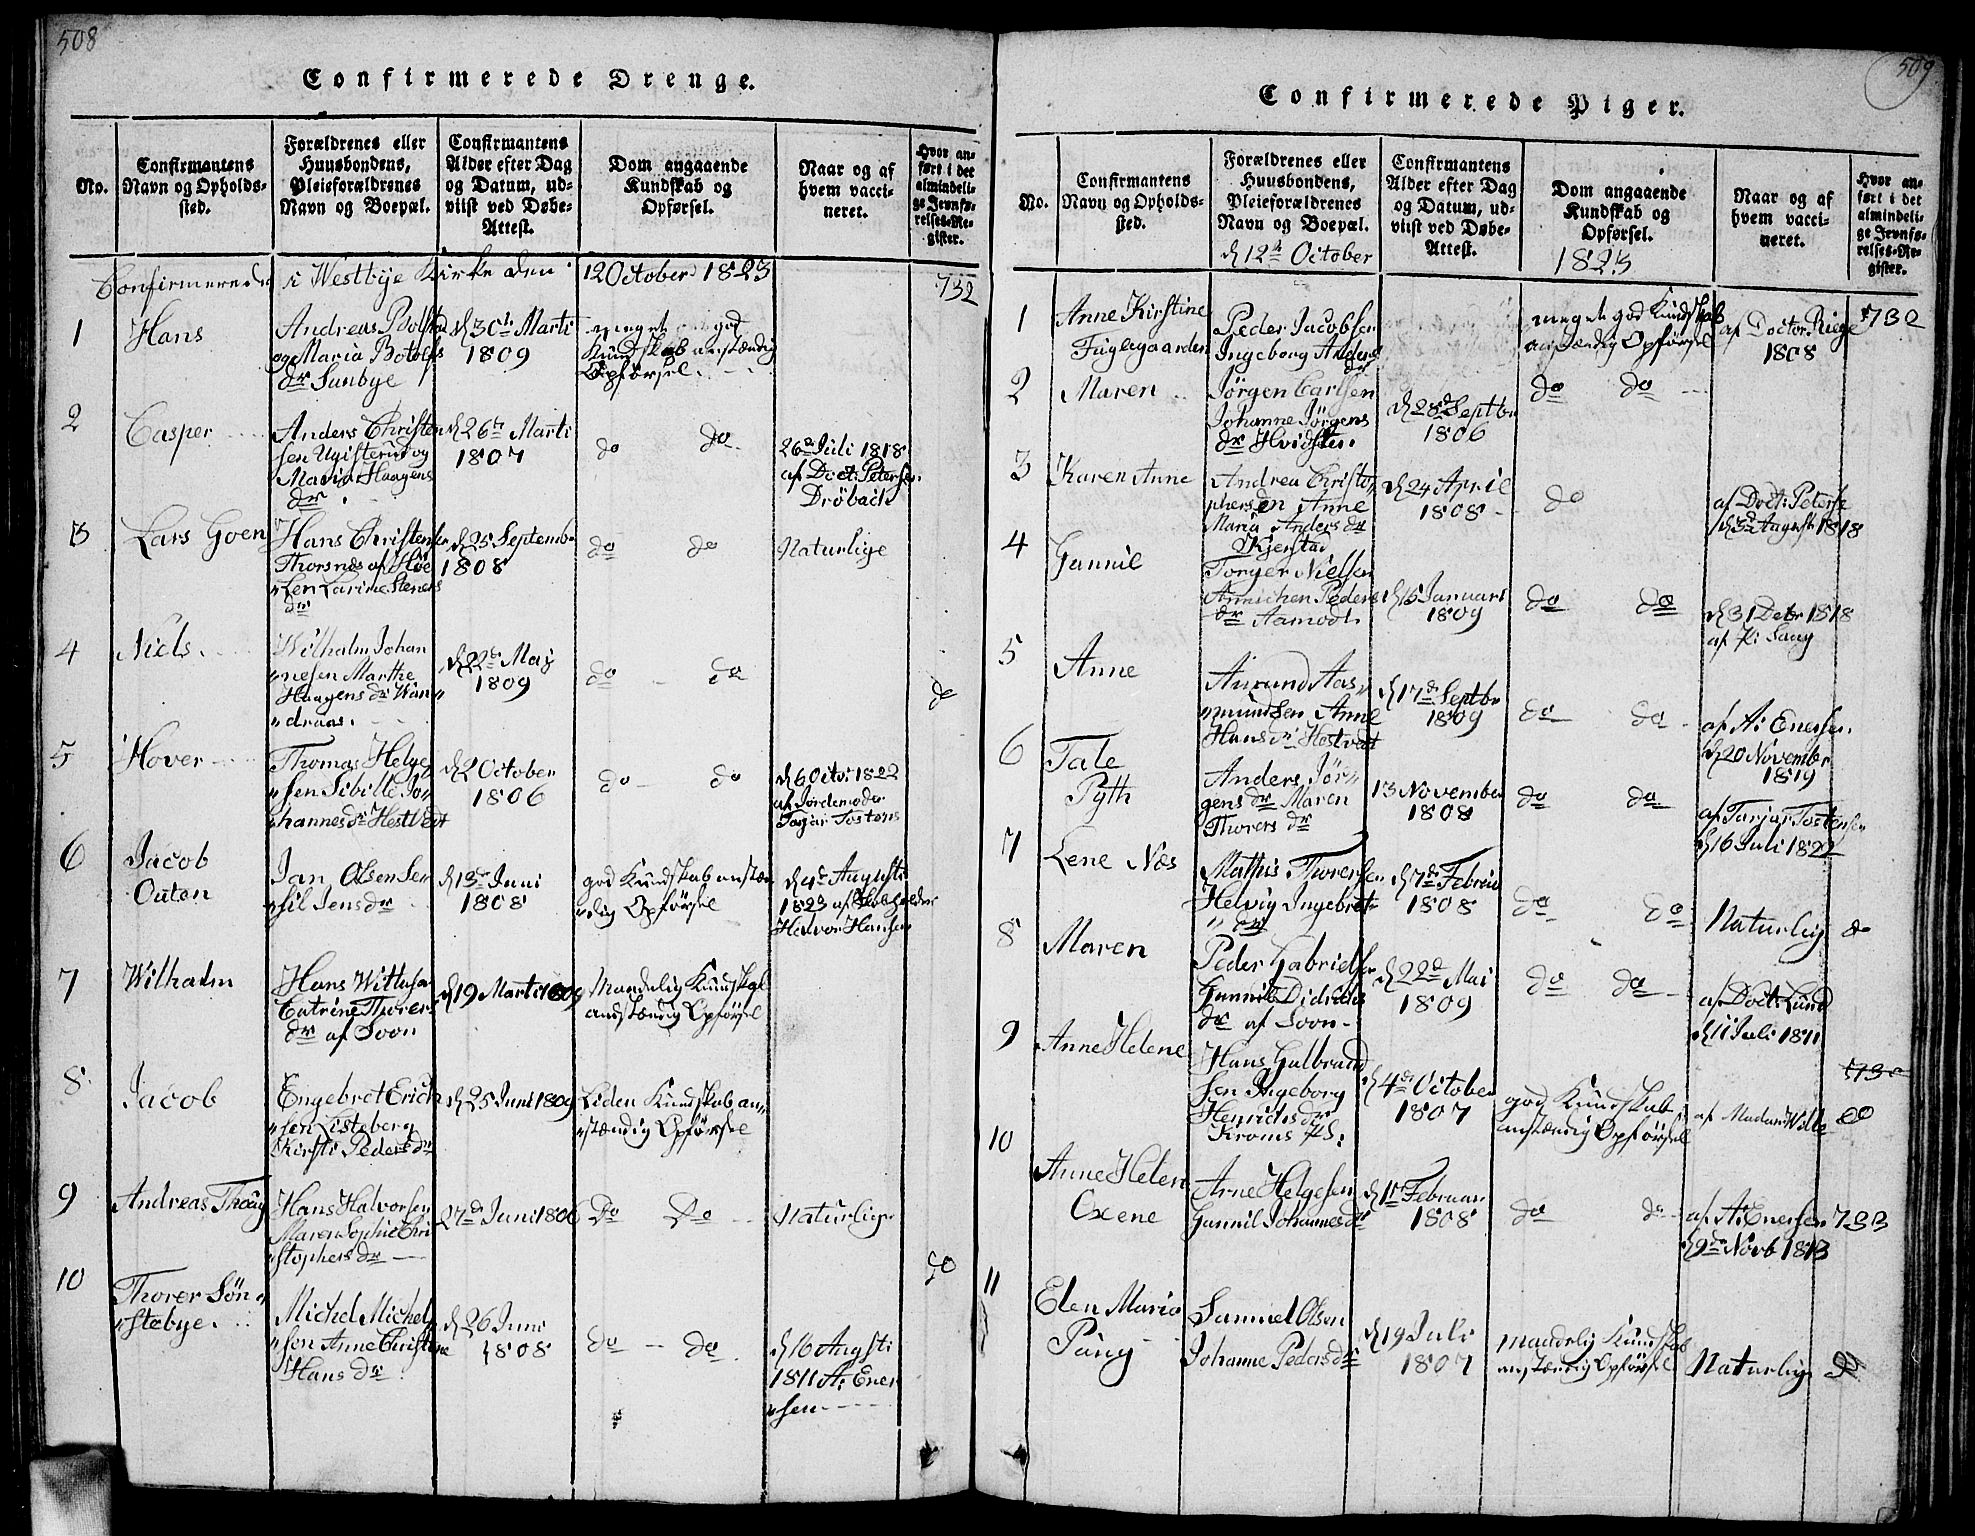 508
Confirmerede Drenge.
No.
Confirmantens
Navn og Opholds-
sted.
Forældrenes eller
Huusbondens,
Pleieforældrenes
Navn og Boepæl.
Confirmantens
Alder efter Dag
og Datum, ud-
viist ved Døbe-
Attest.
Dom angaaende
Kundskab og
Opførsel.
Naar og af
hvem vacci-
neret.
Hvor an-
ført i det
almindeli-
ge Jevnfø-
relses-Re-
gister.
Confirmerede i Westbye Kirke den 12 October 1823
732
1
Hans
Andreas
og Maria Botolfs
dr Sunbye
d 30te Marti
1809
meget god
Kundskab anstændig
Opførsel
2
Casper
Anders Christen
sen og
Maria Haagens
dr
d 26te Marti
1807
do do
26de Juli 1818
af Doct. Petersen
Drøbach
3
Lars Goen
Hans Christense
Thorsnæs af
Len Larine Steners
dr
d 25 Septemb
1808
do do
Naturlige
4
Niels
Wilhalm Johan
"nesen Marthe
Haagens dr Wan"
"draas.
d 22de Maj
1809
do do
do
5
Hover
Thomas Helge
"sen Sibille Jo"
"hannes dr Hestvedt
d 2 October
1806
do do
d 6 Octo: 1822
af Jordemoder
Tarjar Tostens
6
Jacob
Outen
Jan Olsen Ser
"sil Jens dr
d 13de Juni
1808
god Kundskab anstæn
"dig Opførsel
d 4de Augusti
1823 af
Helvor Hansen
7
Wilhalm
Hans Wittusen
Catrine Thorers
dr af Soon
d 19 Marti 1809
Maadelig Kundskab
anstændig Opførsel
8
Jacob
Engebret Erich
"sen Listeberg
Kirsti Peders dr
d 25 Juni 1809
Liden Kundskab an"
"stændig Opførsel
9
Andreas Thoug
Hans Halvorsen
Maren Sophie Chri
"stophers dr
27de Juni 1806
Do Do
Naturlige
do
10
Thorer Søn"
"stebye.
Michel Michel
"sen Anne Christine
Hans dr
d 26 Juni
1808
do do
d 16 Augsti
1811 A: Ener
"sen
509
Confirmerede Piger.
No.
Confirmantens
Navn og Opholds-
sted.
Forældrenes eller
Huusbondens,
Pleieforældrenes
Navn og Boepæl.
Confirmantens
Alder efter Dag
og Datum, ud-
viist ved Døbe-
Attest.
Dom angaaende
Kundskab og
Opførsel.
Naar og af
hvem vacci-
neret.
Hvor an-
ført i det
almindeli-
ge Jevnfø-
relses-Re-
gister.
d 12te October
1823
1
Anne Kirstine
Fuglegaarden
Peder Jacobsen
Ingeborg Anders
dr
meget god Kundskab
anstændig Opførsel
af Doctor Riege
1808
732
2
Maren
Jørgen Carlsen
Johanne Jørgens
dr Hvidsten.
d 28de Septbr
1806
do do
3
Karen Anne
Andrea Christo
phersen Anne
Maria Anders dr
Kjenstad
d 24 April
1808
do
af Doct: Peterse
August 1818
4
Gunnil
Torger Nielsen
Annichen Peders
dr Aamodt.
d 15 Januari
1809
do do
d 31 Debr 1818
af
5
Anne
Amund Aas"
"mundsen Anne
Hans dr Hestvedt
d 17de Septbr
1809
do do
af A: Enersen
d 20 November
1819
6
Tale
Pyth
Anders Jør"
gens dr Maren
Thorers dr
13 November
1808
do do
af Tarjar Tostensen
d 16 Juli 1822
7
Lene Næs
Mathis Thorersen
Helvig Ingebret
" dr
d 7de Februa
1808
do do
Naturlig
do
8
Maren
Peder Gabrielsen
Gunnil Didrichs
dr af Soon
d 22de Mai
1809
do do
af Doct: Lund
d 11 Juli 1811
9
Anne Helene
Hans Gulbrand
sen Ingeborg
Henrichs dr
Kroms Pl:
d 4de October
1807
god Kundskab
anstændig Opførsel
af Madam Wilb
do
10
Anne Helen
Oxene
Arne Helgesen
Gunnil Johannes dr
d 1te Februar
1808
do do
af A: Enersen
d 9de Novb 1813
733
11
Elen Maria
Pung
Samuel Olsen
Johanne Peders dr
d 19 Juli
1807
maadelig Kundskab
anstændig Opførsel
Naturlig
do